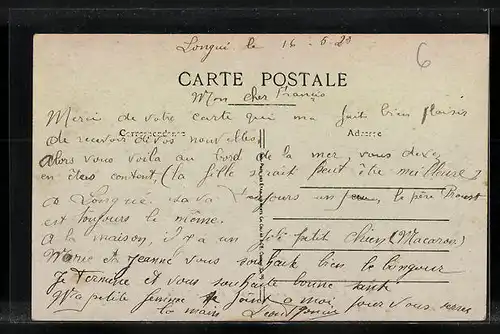 Longué le 16-6-20
6
CARTE POSTALE
Mon cher François
Merci de votre carte qui ma fait bien plaisir
de recevoir de vos nouvelles
Correspondance
Adresse
Alors vous voila au bord de la mer, vous devez
en êtes content, (la fille serait peut être meilleure)
a Longué, sa va toujours un le père Proust
est toujours le même.
A la maison, il y a un joli petit chien (Macaron)
Marie et Jeanne vous souhaite bien le bonjour
Je termine et vous souhaite bonne santé
Ma petite femme se joint a moi pour vous serrer
la main